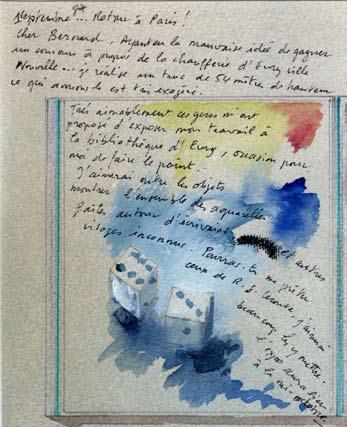 Septembre 87... Retour à Paris !
Cher Bernard, Ayant eu la mauvaise idée de gagner
un concours à propos de la chaufferie d'Evry ville
Nouvelle... je réalise un truc de 54 mètres de hauteur
ce qui amoindri est très exagéré.
Très aimablement ces gens m'ont
proposé d'exposer mon travail à
la bibliothèque d'Evry, occasion pour
moi de faire le point.
J'aimerai outre les objets
montrer l'ensemble des aquarelles
faites autour d'écrivains et autres
visages inconnus. Pourras-tu me prêter
ceux de R. G. j'aimerai
beaucoup les y mettre.
L'expo aura lieu
à la mi-octobre.